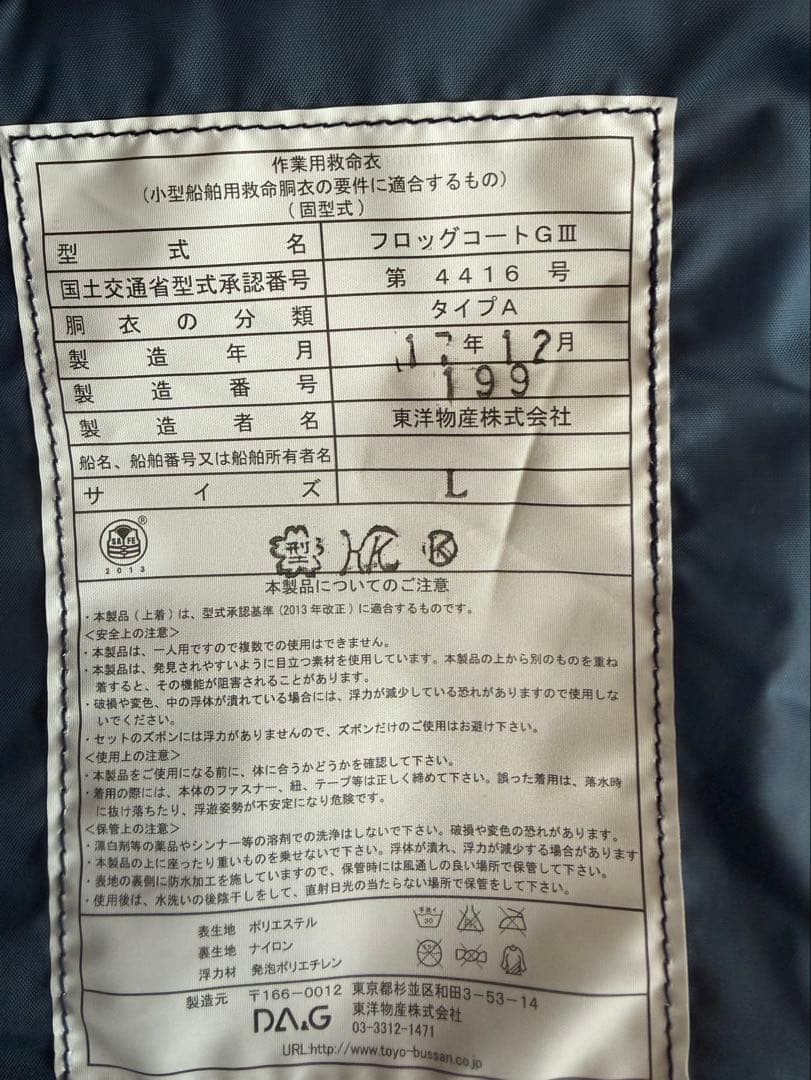 作業用救命衣
(小型船舶用救命胴衣の要件に適合するもの)
(固型式)
型式名 フロッグコートGⅢ
国土交通省型式承認番号 第 4416 号
胴衣の分類 タイプA
製造年月 17年12月
製造番号 199
製造者名 東洋物産株式会社
船名、船舶番号又は船舶所有者名
サイズ L
SAFE ® 2013 型 HK K
本製品についてのご注意
・本製品(上着)は、型式承認基準(2013年改正)に適合するものです。
<安全上の注意>
・本製品は、一人用ですので複数での使用はできません。
・本製品は、発見されやすいように目立つ素材を使用しています。本製品の上から別のものを重ね
着すると、その機能が阻害されることがあります。
・破損や変色、中の浮体が潰れている場合には、浮力が減少している恐れがありますので使用しな
いでください。
・セットのズボンには浮力がありませんので、ズボンだけのご使用はお避け下さい。
<使用上の注意>
・本製品をご使用になる前に、体に合うかどうかを確認して下さい。
・着用の際には、本体のファスナー、紐、テープ等は正しく締めて下さい。誤った着用は、落水時
に抜け落ちたり、浮遊姿勢が不安定になり危険です。
<保管上の注意>
・漂白剤等の薬品やシンナー等の溶剤での洗浄はしないで下さい。破損や変色の恐れがあります。
・本製品の上に座ったり重いものを乗せないで下さい。浮体が潰れ、浮力が減少する場合があります
・表地の裏側に防水加工を施していますので、保管時には風通しの良い場所で保管して下さい。
・使用後は、水洗いの後陰干しをして、直射日光の当たらない場所で保管をして下さい。
表生地 ポリエステル
裏生地 ナイロン
浮力材 発泡ポリエチレン
手洗イ 30
製造元 〒166-0012 東京都杉並区和田3-53-14
DA&G 東洋物産株式会社
03-3312-1471
URL:http://www.toyo-bussan.co.jp